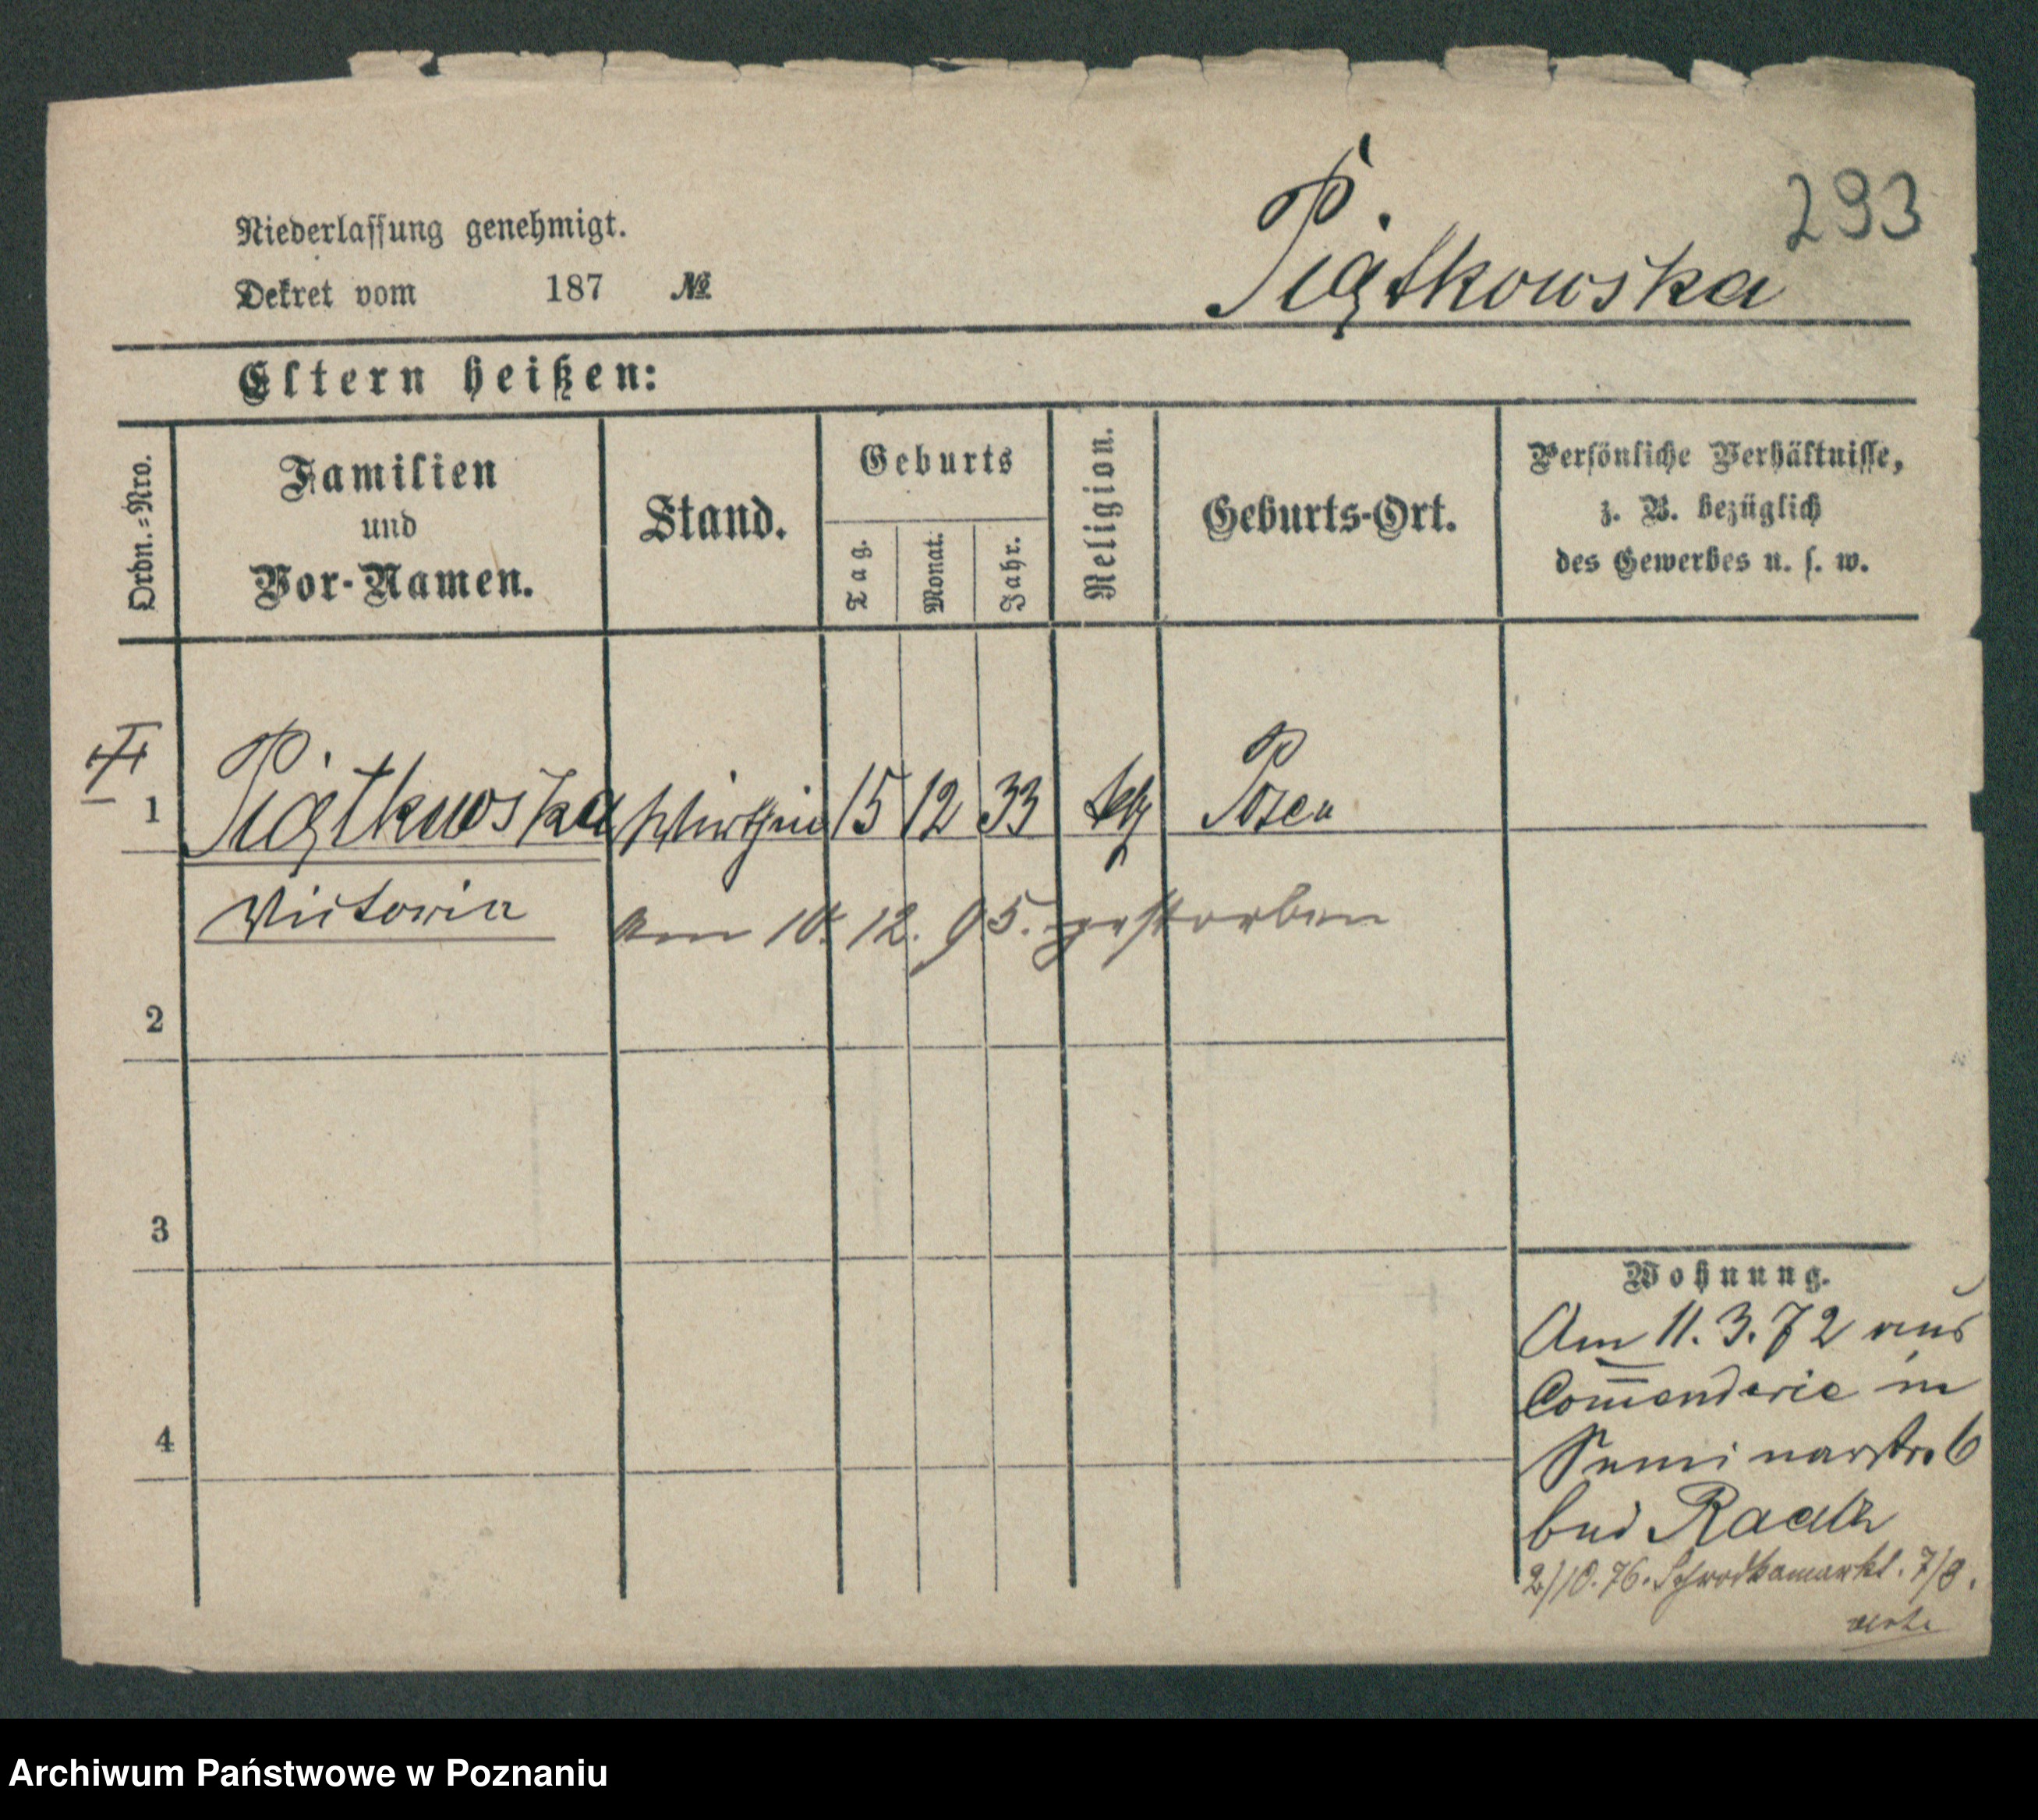 293
Niederlassung genehmigt.
Dekret vom 187 №
Piątkowska
Eltern heißen:
Ordn.=Nro.
Familien
und
Vor-Namen.
Stand.
Geburts
Tag.
Monat.
Jahr.
Religion.
Geburts-Ort.
Persönliche Verhältnisse,
z. B. bezüglich
des Gewerbes u. s. w.
1
Piątkowska Wirthin 15 12 33 kth Posen
Victoria
am 10. 12. 95. gestorben
2
3
4
Wohnung.
Am 11.3.72 aus
Com̅enderie in
Seminarstr. 6
bei
2/10.76. Schrodkamarkt. 7/8.
Archiwum Państwowe w Poznaniu